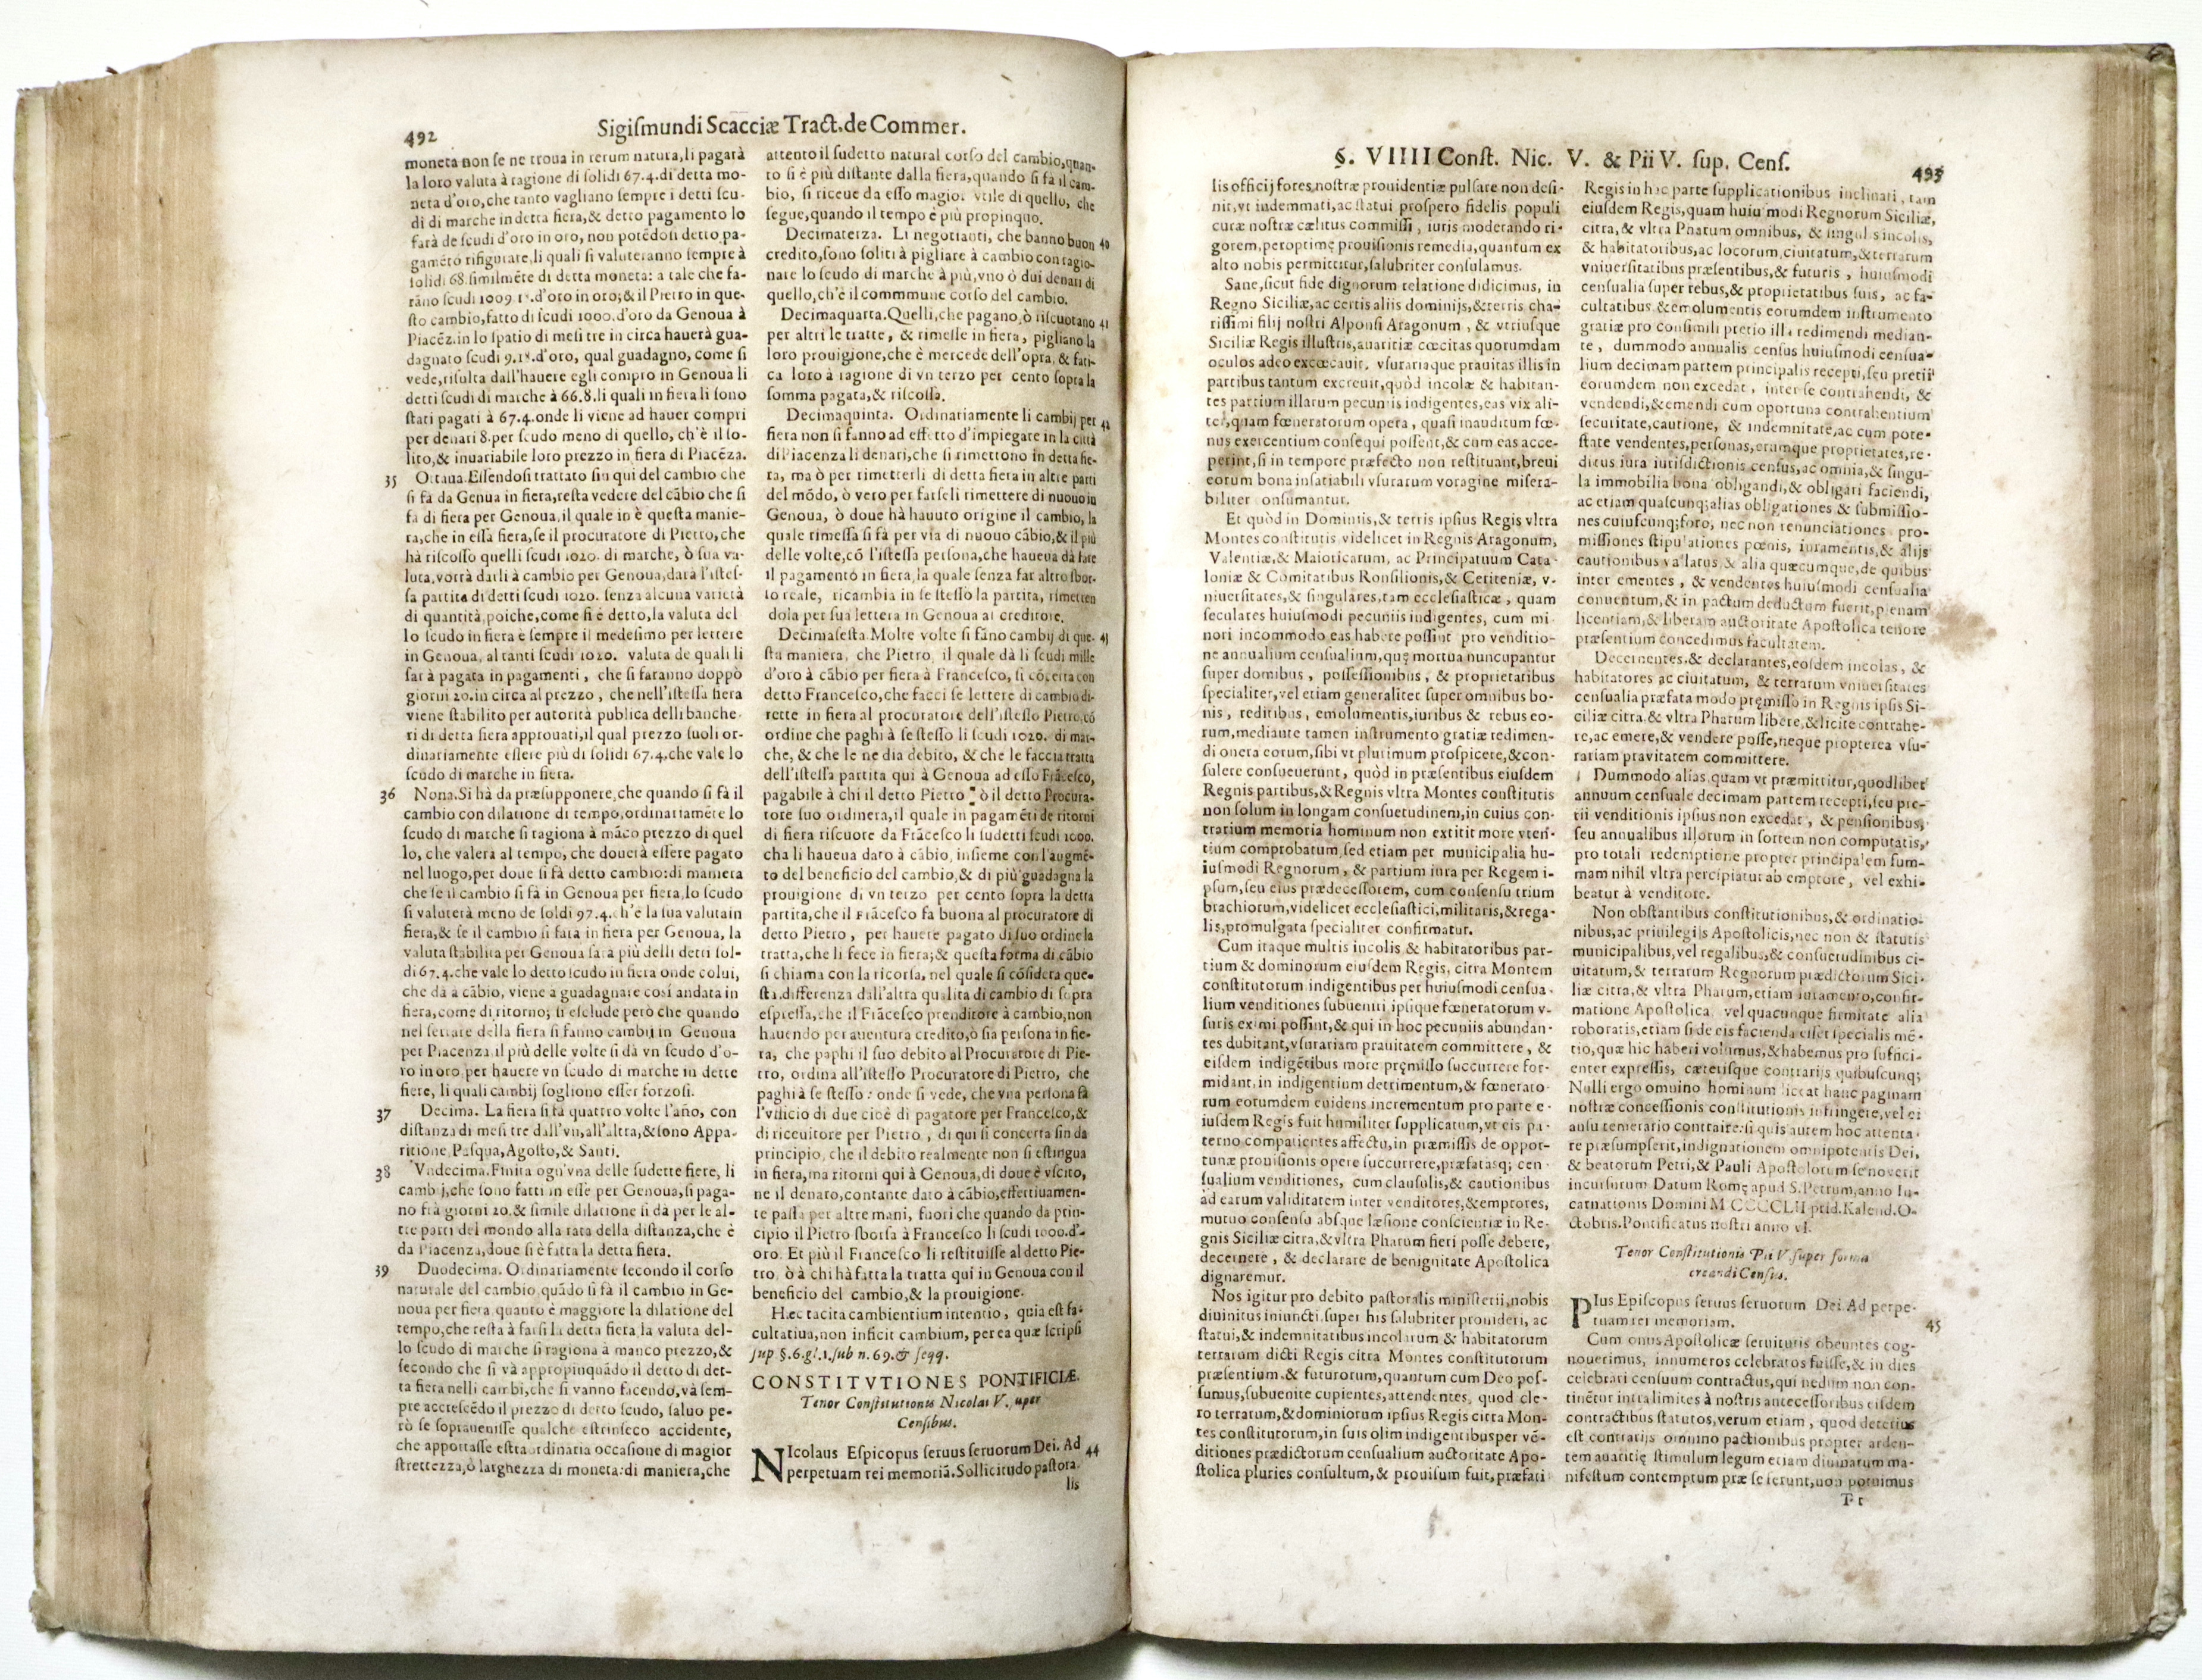 492
Sigiſmundi Scacciæ Tract. de Commer.
moneta non ſe ne troua in rerum natura, li pagarà
la loro valuta à ragione di ſolidi 67.4. di detta mo-
neta d'oro, che tanto vagliano ſempre i detti ſcu-
di di marche in detta fiera, & detto pagamento lo
farà de ſcudi d'oro in oro, non potẽdoſi detto pa-
gamẽto rifigurate, li quali ſi valuteranno ſempre à
ſolidi 68. ſimilmẽte di detta moneta: a tale che fa-
rãno ſcudi 1009 d'oro in oro; & il Pietro in que-
ſto cambio, fatto di ſcudi 1000. d'oro da Genoua à
Piacẽz. in lo ſpatio di meſi tre in circa hauerà gua-
dagnato ſcudi d'oro, qual guadagno, come ſi
vede, riſulta dall'hauere egli compro in Genoua li
detti ſcudi di marche à 66.8. li quali in fiera li ſono
ſtati pagati à 67.4. onde li viene ad hauer compri
per denati 8. per ſcudo meno di quello, ch'è il ſo-
lito, & inuariabile loro prezzo in fiera di Piacẽza.
35 Ottaua. Eſſendoſi trattato ſin qui del cambio che
ſi fà da Genua in fiera, reſta vedere del cãbio che ſi
fà di fiera per Genoua, il quale in è queſta manie-
ra, che in eſſa fiera, ſe il procuratore di Pietro, che
hà riſcoſſo quelli ſcudi 1020. di marche, ò ſua va-
luta, vorrà darli à cambio per Genoua, dara l'iſteſ-
ſa partita di detti ſcudi 1020. ſenza alcuna varietà
di quantità, poiche, come ſi è detto, la valuta del
lo ſcudo in fiera è ſempre il medeſimo per lettere
in Genoua, al tanti ſcudi 1020. valuta de quali li
ſarà pagata in pagamenti, che ſi faranno doppò
giorni 20. in circa al prezzo, che nell'iſteſſa fiera
viene ſtabilito per autorità publica delli banche-
ri di detta fiera approuati, il qual prezzo ſuoli or-
dinariamente eſſere più di ſolidi 67.4. che vale lo
ſcudo di marche in fiera.
36 Nona. Si hà da præſupponere, che quando ſi fà il
cambio con dilatione di tempo, ordinariamẽte lo
ſcudo di marche ſi ragiona à mãco prezzo di quel
lo, che valerà al tempo, che douerà eſſere pagato
nel luogo, per doue ſi fà detto cambio: di maniera
che ſe il cambio ſi fà in Genoua per fiera, lo ſcudo
ſi valuterà meno de ſoldi 97.4. ch'è la ſua valuta in
fiera, & ſe il cambio ſi farà in fiera per Genoua, la
valuta ſtabilita per Genoua ſarà più delli detti ſol-
di 67.4. che vale lo detto ſcudo in fiera onde colui,
che dà à cãbio, viene à guadagnare così andata in
fiera, come di ritorno; ſi eſclude però che quando
nel ſerrare della fiera ſi fanno cambij in Genoua
per Piacenza il più delle volte ſi dà vn ſcudo d'o-
ro in oro per hauere vn ſcudo di marche in dette
fiere, li quali cambij ſogliono eſſer forzoſi.
37 Decima. La fiera ſi fà quattro volte l'año, con
diſtanza di meſi tre dall'vn, all'altra, & ſono Appa-
ritione, Paſqua, Agoſto, & Santi.
38 Vndecima. Finita ogn'vna delle ſudette fiere, li
cambij, che ſono fatti in eſſe per Genoua, ſi paga-
no frà giorni 20. & ſimile dilatione ſi dà per le al-
tre parti del mondo alla rata della diſtanza, che è
da Piacenza, doue ſi è fatta la detta fiera.
39 Duodecima. Ordinariamente ſecondo il corſo
naturale del cambio, quãdo ſi fà il cambio in Ge-
noua per fiera, quanto è maggiore la dilatione del
tempo, che reſta à farſi la detta fiera la valuta del-
lo ſcudo di marche ſi ragiona à manco prezzo, &
ſecondo che ſi và appropinquãdo il detto di det-
ta fiera nelli cambi, che ſi vanno facendo, và ſem-
pre accreſcẽdo il prezzo di detto ſcudo, ſaluo pe-
rò ſe ſoprauenisſe qualche eſtrinſeco accidente,
che apportaſſe eſtraordinatia occaſione di magior
ſtrettezza, ò larghezza di moneta: di maniera, che
attento il ſudetto natural corſo del cambio, quan-
to ſi è più diſtante dalla fiera, quando ſi fà il cam-
bio, ſi riceue da eſſo magior vtile di quello, che
ſegue, quando il tempo è più propinquo.
Decimaterza. Li negotianti, che hanno buon 40
credito, ſono ſoliti à pigliare à cambio con ragio-
nare lo ſcudo di marche à più, vno ò dui denari di
quello, ch'è il commmune corſo del cambio.
Decimaquarta. Quelli, che pagano, ò riſcuotano 41
per altri le tratte, & rimeſſe in fiera, pigliano la
loro prouigione, che è mercede dell'opra, & fati-
ca loro à ragione di vn terzo per cento ſopra la
ſomma pagata, & riſcoſſa.
Decimaquinta. Ordinariamente li cambij per 42
fiera non ſi fanno ad effetto d'impiegare in la città
di Piacenza li denari, che ſi rimettono in detta fie-
ra, ma ò per rimetterli di detta fiera in altre parti
del mõdo, ò vero per farſeli rimettere di nuouo in
Genoua, ò doue hà hauuto origine il cambio, la
quale rimeſſa ſi fà per via di nuouo cãbio, & il più
delle volte, cõ l'iſteſſa perſona, che haueua dà fare
il pagamento in fiera, la quale ſenza far altro ſbor-
ſo reale, ricambia in ſe ſteſſo la partita, rimetten
dola per ſua lettera in Genoua al creditore.
Decimaſeſta. Molte volte ſi fãno cambij di que- 43
ſta maniera, che Pietro, il quale dà li ſcudi mille
d'oro à cãbio per fiera à Franceſco, ſi cõcerta con
detto Franceſco, che facci ſe lettere di cambio di-
rette in fiera al procuratore dell'iſteſſo Pietro, cõ
ordine che paghi à ſe ſteſſo li ſcudi 1020. di mar-
che, & che le ne dia debito, & che le faccia tratta
dell'iſteſſa partita qui à Genoua ad eſſo Frãceſco,
pagabile à chi il detto Pietro: ò il detto Procura-
tore ſuo ordinera, il quale in pagamẽti de ritorni
di fiera riſcuote da Frãceſco li ſudetti ſcudi 1000.
cha li haueua dato à cãbio, inſieme con l'augmẽ-
to del beneficio del cambio, & di più guadagna la
prouigione di vn terzo per cento ſopra la detta
partita, che il Frãceſco fa buona al procuratore di
detto Pietro, per hauere pagato di ſuo ordine la
tratta, che li fece in fiera; & queſta forma di cãbio
ſi chiama con la ricorſa, nel quale ſi cõſidera que-
ſta differenza dall'altra qualita di cambio di ſopra
eſpreſſa, che il Frãceſco prenditore à cambio, non
hauendo per auentura credito, ò ſia perſona in fie-
ra, che paghi il ſuo debito al Procuratore di Pie-
tro, ordina all'iſteſſo Procuratore di Pietro, che
paghi à ſe ſteſſo: onde ſi vede, che vna perſona fà
l'vfficio di due cioè di pagatore per Franceſco, &
di riceuitore per Pietro, di qui ſi concerta ſin da
principio, che il debito realmente non ſi eſtingua
in fiera, ma ritorni qui à Genoua, di doue è vſcito,
ne il denaro, contante dato à cãbio, effettiuamen-
te paſſa per altre mani, fuori che quando da prin-
cipio il Pietro sborſa à Franceſco li ſcudi 1000. d'-
oro. Et più il Franceſco li reſtituiſſe al detto Pie-
tro, ò à chi hà fatta la tratta qui in Genoua con il
beneficio del cambio, & la prouigione.
Hæc tacita cambientium intentio, quia eſt fa-
cultatiua, non inficit cambium, per ea quæ ſcripſi
ſup §.6. gl.1. ſub n. 69. & ſeqq.
CONSTITVTIONES PONTIFICIÆ.
Tenor Conſtitutionis Nicolai V. ſuper
Cenſibus.
NIcolaus Eſpicopus ſeruus ſeruorum Dei. Ad 44
perpetuam rei memoriã. Sollicitudo paſtora-
lis
§. VIIII Conſt. Nic. V. & Pii V. ſup. Cenſ.
493
lis officij fores, noſtræ prouidentiæ pulſare non deſi-
nit, vt indemmati, ac ſtatui proſpero fidelis populi
curæ noſtræ cælitus commiſſi, iuris moderando ri-
gorem, peroptimę prouiſionis remedia, quantum ex
alto nobis permittitur, ſalubriter conſulamus.
Sane, ſicut fide dignorum relatione didicimus, in
Regno Siciliæ, ac certis aliis dominijs, & terris cha-
riſſimi filij noſtri Alponſi Aragonum, & vtriuſque
Siciliæ Regis illuſtris, auaritiæ cœcitas quorumdam
oculos adeo excœcauit, vſurariaque prauitas illis in
partibus tantum excreuit, quòd incolæ & habitan-
tes partium illarum pecuniis indigentes, eas vix ali-
ter, quam fœneratorum opera, quaſi inauditum fœ-
nus exercentium conſequi poſſent, & cum eas acce-
perint, ſi in tempore præfecto non reſtituant, breui
eorum bona inſatiabili vſurarum voragine miſera-
biliter conſumantur.
Et quòd in Dominiis, & terris ipſius Regis vltra
Montes conſtitutis videlicet in Regnis Aragonum,
Valentiæ, & Maioricarum, ac Principatuum Cata-
loniæ & Comitatibus Ronſilionis, & Ceriteniæ, v-
niuerſitates, & ſingulares, tam eccleſiaſticæ, quam
ſeculares huiuſmodi pecuniis indigentes, cum mi-
nori incommodo eas habere poſſint pro venditio-
ne annualium cenſualium, quę mortua nuncupantur
ſuper domibus, poſſeſſionibus, & proprietatibus
ſpecialiter, vel etiam generaliter ſuper omnibus bo-
nis, reditibus, emolumentis, iuribus & rebus eo-
rum, mediante tamen inſtrumento gratiæ redimen-
di onera eorum, ſibi vt plurimum proſpicere, & con-
ſulere conſueuerunt, quòd in præſentibus eiuſdem
Regnis partibus, & Regnis vltra Montes conſtitutis
non ſolum in longam conſuetudinem, in cuius con-
trarium memoria hominum non extitit more vten-
tium comprobatum, ſed etiam per municipalia hu-
iuſmodi Regnorum, & partium iura per Regem i-
pſum, ſeu eius prædeceſſorem, cum conſenſu trium
brachiorum, videlicet eccleſiaſtici, militaris, & rega-
lis, promulgata ſpecialiter confirmatur.
Cum itaque multis incolis & habitatoribus par-
tium & dominorum eiuſdem Regis, citra Montem
conſtitutorum indigentibus per huiuſmodi cenſua-
lium venditiones ſubueniri ipſique fœneratorum v-
ſuris eximi poſſint, & qui in hoc pecuniis abundan-
tes dubitant, vſurariam prauitatem committere, &
eiſdem indigẽtibus more pręmiſſo ſuccurrere for-
midant, in indigentium detrimentum, & fœnerato-
rum eorumdem euidens incrementum pro parte e-
iuſdem Regis fuit humiliter ſupplicatum, vt eis pa-
terno compatientes affectu, in præmiſſis de oppor-
tunæ prouiſionis opere ſuccurrere, præfatasq; cen-
ſualium venditiones, cum clauſulis, & cautionibus
ad earum validitatem inter venditores, & emptores,
mutuo conſenſu abſque læſione conſcientiæ in Re-
gnis Siciliæ citra, & vltra Pharum fieri poſſe debere,
decernere, & declarare de benignitate Apoſtolica
dignaremur.
Nos igitur pro debito paſtoralis miniſterii, nobis
diuinitus iniuncti ſuper his ſalubriter prouideri, ac
ſtatui, & indemnitatibus incolarum & habitatorum
terrarum dicti Regis citra Montes conſtitutorum
præſentium & futurorum, quantum cum Deo poſ-
ſumus, ſubuenire cupientes, attendentes, quod cle-
ro terrarum, & dominiorum ipſius Regis citra Mon-
tes conſtitutorum, in ſuis olim indigentibus per vẽ-
ditiones prædictorum cenſualium auctoritate Apo-
ſtolica pluries conſultum, & prouiſum fuit, præfati
Regis in hac parte ſupplicationibus inclinati, tam
eiuſdem Regis, quam huiuſmodi Regnorum Siciliæ,
citra, & vltra Pharum omnibus, & ſingulis incolis,
& habitatoribus, ac locorum, ciuitatum, & terrarum
vniuerſitatibus præſentibus, & futuris, huiuſmodi
cenſualia ſuper rebus, & proprietatibus ſuis, ac fa-
cultatibus & emolumentis eorumdem inſtrumento
gratiæ pro conſimili pretio illa redimendi median-
te, dummodo annualis cenſus huiuſmodi cenſua-
lium decimam partem principalis recepti, ſeu pretii
eorumdem non excedat, inter ſe contrahendi, &
vendendi, & emendi cum oportuna contrahentium
ſecuritate, cautione, & indemnitate, ac cum pote-
ſtate vendentes, perſonas, eramque proprietates, re-
ditus iura iuriſdictionis cenſus, ac omnia, & ſingu-
la immobilia bona obligandi, & obligari faciendi,
ac etiam quaſcunq; alias obligationes & ſubmiſſio-
nes cuiuſcunq; foro, nec non renunciationes pro-
miſſiones ſtipulationes pœnis, iuramentis, & alijs
cautionibus vallatus, & alia quæcumque, de quibus
inter ementes, & vendentes huiuſmodi cenſualia
conuentum, & in pactum deductum fuerit, plenam
licentiam, & liberam auctoritate Apoſtolica tenore
præſentium concedimus facultatem.
Decernentes, & declarantes, eoſdem incolas, &
habitatores ac ciuitatum, & terrarum vniuerſitates
cenſualia præfata modo pręmiſſo in Regnis ipſis Si-
ciliæ citra, & vltra Pharum libere, & licite contrahe-
re, ac emere, & vendere poſſe, neque propterea vſu-
rariam pravitatem committere.
Dummodo alias, quam vt præmittitur, quodlibet
annuum cenſuale decimam partem recepti, ſeu pre-
tii venditionis ipſius non excedat, & penſionibus,
ſeu annualibus illorum in ſortem non computatis,
pro totali redemptione propter principalem ſum-
mam nihil vltra percipiatur ab emptore, vel exhi-
beatur à venditore.
Non obſtantibus conſtitutionibus, & ordinatio-
nibus, ac priuilegijs Apoſtolicis, nec non & ſtatutis
municipalibus, vel regalibus, & conſuetudinibus ci-
uitatum, & terrarum Regnorum prædictorum Sici-
liæ citra, & vltra Pharum, etiam iuramento, confir-
matione Apoſtolica vel quacunque firmitate alia
roboratis, etiam ſi de eis facienda eſſet ſpecialis mẽ-
tio, quæ hic haberi volumus, & habemus pro ſuffici-
enter expreſſis, cæteriſque contrarijs quibuſcunq;
Nulli ergo omnino hominum liceat hanc paginam
noſtræ conceſſionis conſtitutionis infringere, vel ei
auſu temerario contraire: ſi quis autem hoc attenta-
re præſumpſerit, indignationem omnipotentis Dei,
& beatorum Petri, & Pauli Apoſtolorum ſe noverit
incurſurum Datum Romę apud S. Petrum, anno In-
carnationis Domini M CCCCLII prid. Kalend. O-
ctobris. Pontificatus noſtri anno vI.
Tenor Conſtitutionis Pii V. ſuper forma
creandi Cenſus.
PIus Epiſcopus ſeruus ſeruorum Dei. Ad perpe-
tuam rei memoriam. 45
Cum onus Apoſtolicæ ſeruitutis obeuntes cog-
nouerimus, innumeros celebratos fuiſſe, & in dies
celebrari cenſuum contractus, qui nedum non con-
tinẽtur intra limites à noſtris anteceſſoribus eiſdem
contractibus ſtatutos, verum etiam, quod deterius
eſt contrarijs omnino pactionibus propter arden-
tem auaritię ſtimulum legum etiam diuinarum ma-
nifeſtum contemptum præ ſe ferunt, non potuimus
Tt